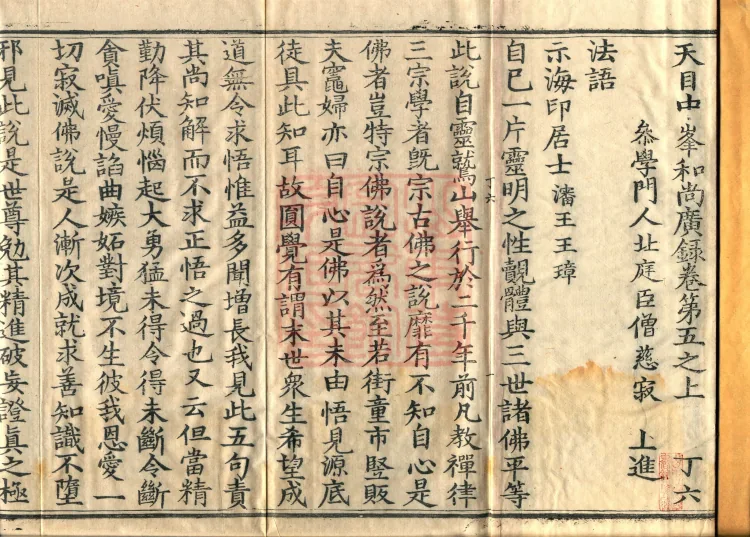 天目中峯和尚廣録卷第五之上 丁六
叅學門人北庭臣僧慈寂 上進
法語
示海印居士 瀋王王璋
自已一片靈明之性覿體與三世諸佛平等
丁六
此說自靈鷲山舉行於二千年前凡教禪律
三宗學者旣宗古佛之說靡有不知自心是
佛者豈特宗佛說者爲然至若街童市竪販
夫竈婦亦曰自心是佛以其未由悟見源底
徒具此知耳故圓覺有謂末世衆生希望成
道無令求悟惟益多聞增長我見此五句責
其尚知解而不求正悟之過也又云但當精
勤降伏煩惱起大勇猛未得令得未斷令斷
貪嗔愛慢諂曲嫉妬對境不生彼我恩愛一
切寂滅佛說是人漸次成就求善知識不墮
邪見此說是世尊勉其精進破妄證眞之極